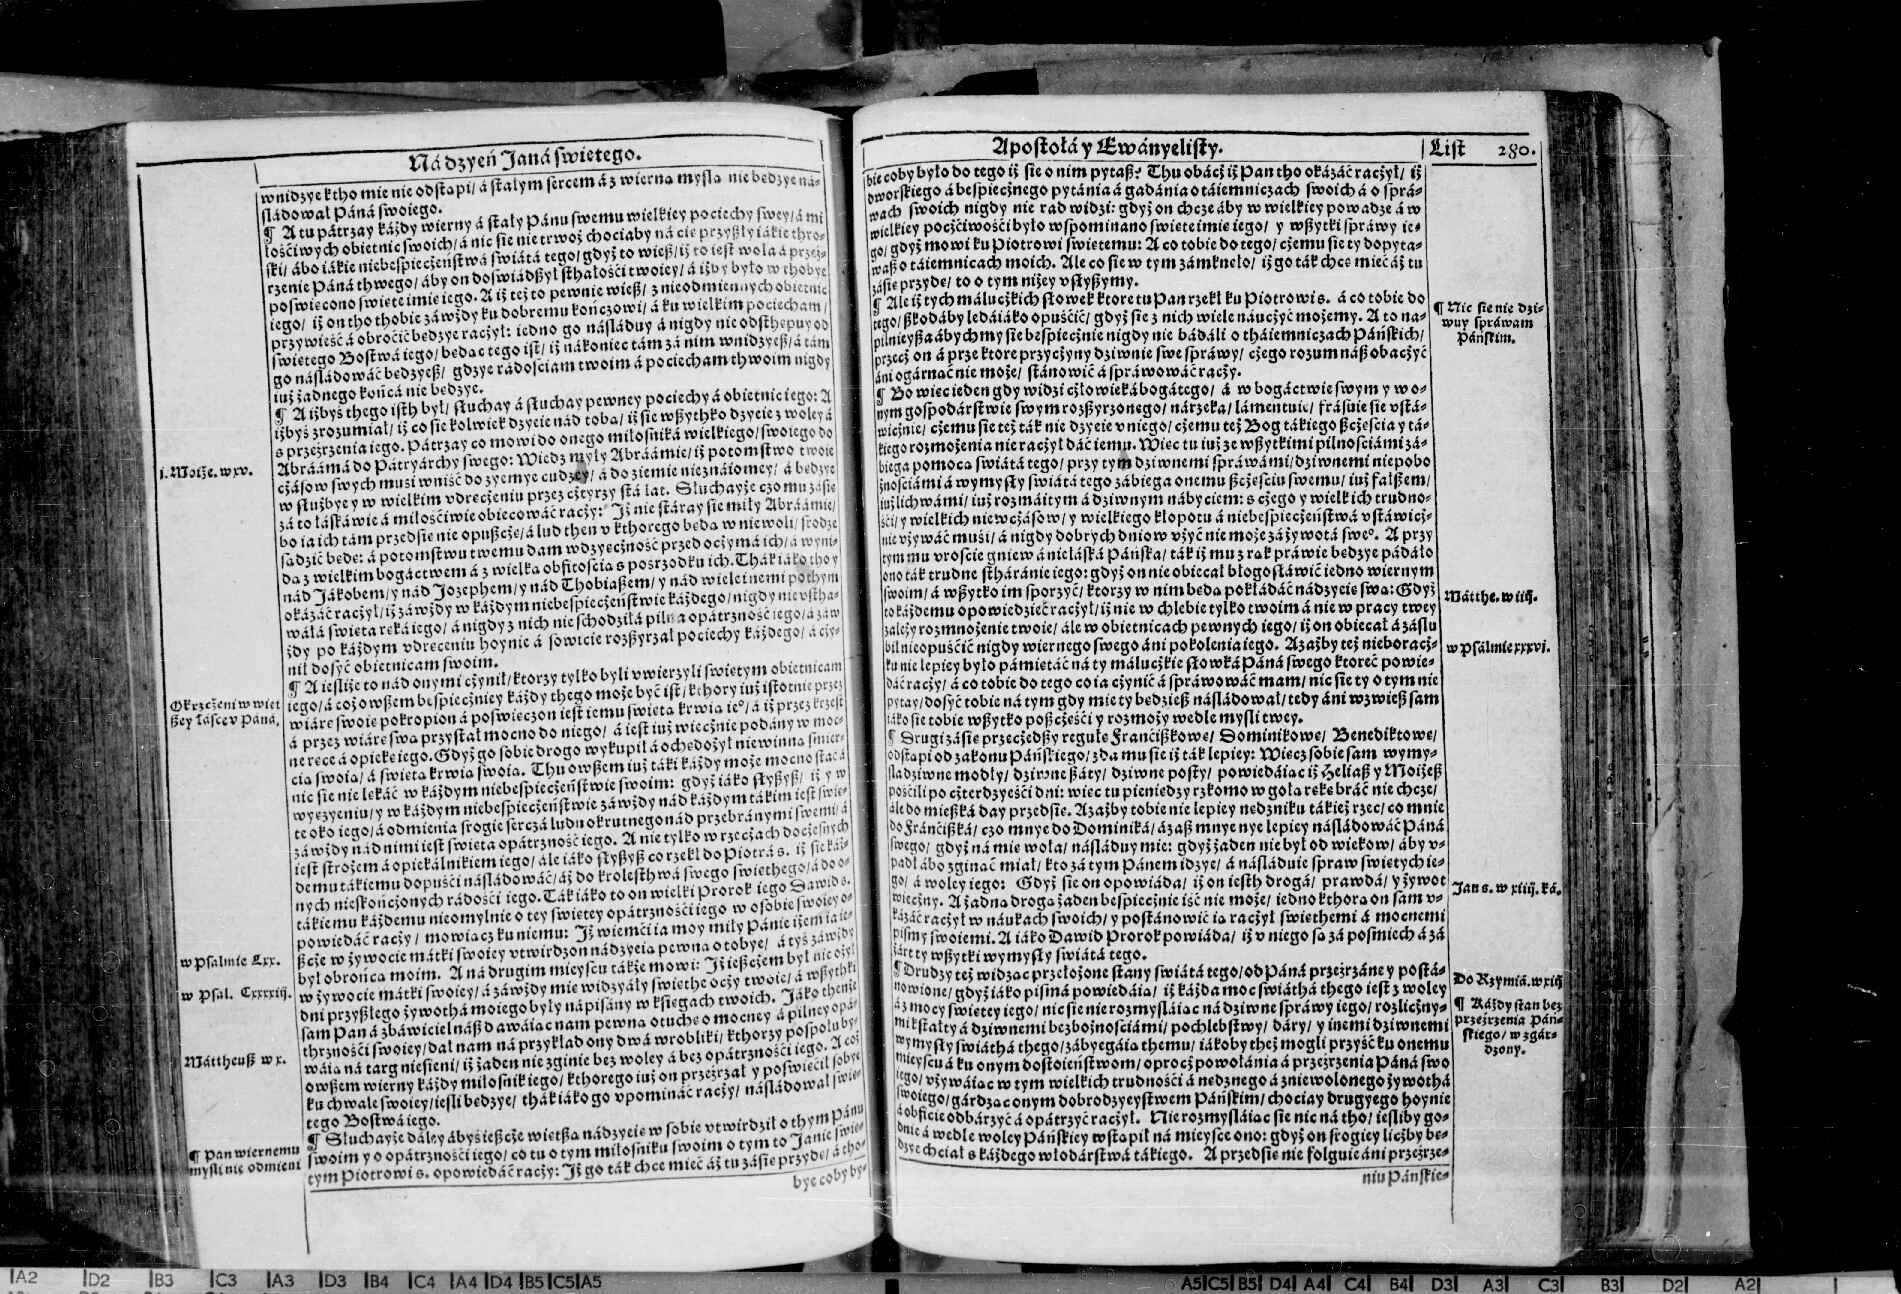 Ná dzyeń Janá swietego.
wnidzye ktho mie nie odstąpi/ á stałym sercem á z wierna mysla nie bedzye ná-
sládował Páná swoiego.
¶ A tu pátrzay káżdy wierny á stały Pánu swemu wielkiey pociechy swey/ á mi
łośćiwych obietnic swoich/ á nic sie nie trwoż chociaby ná cie przyszły iákie thro-
ski/ ábo iákie niebespiecżeństwá świátá tego/ gdyż to wiesz/ iż to iest wola á przey-
rzenie Páná thwego/ áby on doświádszył sthałośći twoiey/ á iżby było w thobye
poswiecono swiete imie iego. A iż też to pewnie wiesz/ z nieodmiennych obietnic
iego/ iż on tho thobie záwżdy ku dobremu końcżowi/ á ku wielkim pociecham/
przywieść á obroćić bedzye racżył: iedno go násláduy á nigdy nie odsthepuy od
swietego Bostwá iego/ bedac tego ist/ iż nákoniec tám zá nim wnidzyesz/ á tám
go násládowáć bedzyesz/ gdzye rádośćiam twoim á pociecham thwoim nigdy
iuż żadnego końcá nie bedzye.
¶ A iżbyś thego isth był/ słuchay á słuchay pewney pociechy á obietnic iego: A
iżbyś zrozumiał/ iż co sie kolwiek dzyeie nád toba/ iż sie wszythko dzyeie z woley á
s przeyrzenia iego. Pátrzay co mowi do onego miłośniká wielkiego/ swoiego do
Abráámá do Pátryárchy swego: Wiedz myły Abráámie/ iż potomstwo twoie
cżásow swych muśi wniść do zyemye cudzey/ á do ziemie nieznáiomey/ á bedzye
w służbye y w wielkim vdrecżeniu przez cżtyrzy stá lat. Słuchayże czo mu zásie
zá to łáskáwie á miłośćiwie obiecowáć racży: Iż nie stáray sie miły Abráámie/
bo ia ich tám przedsie nie opuszcże/ á lud then v kthorego beda w niewoli/ srodze
sadzić bede: á potomstwu twemu dam wdzyecżność przed ocżymá ich/ á wyni-
da z wielkim bogáctwem á z wielka obfitośćia s pośrzodku ich. Thák iáko tho y
nád Jákobem/ y nád Jozephem/ y nád Thobiaszem/ y nád wiele inemi pothym
okázáć racżył/ iż záwżdy w káżdym niebespiecżeństwie káżdego/ nigdy nie vstha-
wáłá swieta reká iego/ á nigdy z nich nie schodziłá pilna opátrzność iego/ á záw
żdy po káżdym vdrecżeniu hoynie á sowicie rozszyrzał pociechy káżdego/ á cży-
nił dosyć obietnicam swoim.
¶ A iesliże to nád onymi cżynił/ ktorzy tylko byli vwierzyli swietym obietnicam
iego/ á cożowszem bespiecżniey káżdy thego może być ist/ kthory iuż istotnie przez
wiáre swoie pokropion á poswiecżon iest iemu swieta krwia ieº/ á iż przez krzest
á przez wiáre swa przystał mocno do niego/ á iest iuż wiecżnie podány w moc-
ne rece á opieke iego. Gdyż go sobie drogo wykupił á ochedożył niewinna śmier-
cia swoia/ á swieta krwia swoia. Thu owszem iuż táki káżdy może mocno stać á
nic sie nie lekáć w káżdym niebespiecżeństwie swoim: gdyż iáko słyszysz/ iż y w
wyezyeniu/ y w káżdym niebespiecżeństwie záwżdy nád káżdym tákim iest swie-
te oko iego/ á odmienia srogie sercá ludu okrutnego nád przebránymi swemi/ á
záwżdy nád nimi iest swieta opátrzność iego. A nie tylko w rzecżach docżesnych
iest strożem á opiekálnikiem iego/ ále iáko słyszysz co rzekł do Piotrá s. iż sie káż-
demu tákiemu dopuśći násládowáć/ áż do krolesthwá swego swiethego/ á do o-
nych nieskońcżonych rádośći iego. Ták iáko to on wielki Prorok iego Dawid s.
tákiemu káżdemu nieomylnie o tey swietey opátrznośći iego w osobie swoiey o-
powiedáć racży/ mowiacz ku niemu: Iż wiem ći ia moy miły Pánie iżem ia ie-
szcże w żywocie mátki swoiey vtwirdzon nádzyeia pewna o tobye/ á tyś záwżdy
był obrońca moim. A ná drugim mieyscu tákże mowi: Iż ieszcżem był nie ożył
w żywocie mátki swoiey/ á záwżdy mie widzyáły swiethe ocży twoie/ á wszythki
dni przyszłego żywothá moiego były nápisány w ksiegach twoich. Jáko thenże
sam Pan á zbáwiciel nász dawáiac nam pewna otuche o mocney á pilney opá-
thrznośći swoiey/ dał nam ná przykład ony dwá wrobliki/ kthorzy pospołu by-
wáia ná targ niesieni/ iż żaden nie zginie bez woley á bez opátrznośći iego. A coż
owszem wierny káżdy miłośnik iego/ kthorego iuż on przeyrzał y poswiećił sobye
ku chwale swoiey/ iesli bedzye/ thák iáko go vpomináć racży/ násládował swie-
tego Bostwá iego.
¶ Słuchayże dáley ábyś ieszcże wietsza nádzyeie w sobie vtwirdził o thym Pánu
swoim y o opátrznośći iego/ co tu o tym miłośniku swoim o tym to Janie swie-
tym Piotrowi s. opowiedáć racży: Iż go ták chce mieć áż tu zásie przyde/ á tho-
bye coby by-
i. Moiże. w xv.
Okrzcżeni w wiet
szey łásce v Páná,
w Psalmie Lxx.
w Psal. Cxxxxiij.
Mátheusz w x.
¶ Pan wiernemu
mysli nie odmieni
Apostołá y Ewányelisty.
List 280.
bie coby było do tego iż sie o nim pytasz? Thu obácż iż Pan tho okázáć racżył/ iż
dworskiego á bespiecżnego pytánia á gadánia o táiemniczach swoich á o sprá-
wach swoich nigdy nie rad widzi: gdyż on chcze áby w wielkiey powadze á w
wielkiey pocżćiwośći było wspominano swiete imie iego/ y wszytki spráwy ie-
go/ gdyż mowi ku Piotrowi swietemu: A co tobie do tego/ cżemu sie ty dopyta-
wasz o táiemnicach moich. Ale co sie w tym zámkneło/ iż go ták chce mieć áż tu
zásie przyde/ to o tym niżey vsłyszymy.
¶ Ale iż tych málucżkich słowek ktore tu Pan rzekł ku Piotrowi s. á co tobie do
tego/ szkodá by ledáiáko opuśćić/ gdyż sie z nich wiele náucżyć możemy. A to na-
pilnieysza ábychmy sie bespiecżnie nigdy nie bádáli o tháiemniczach Páńskich/
przecż on á prze ktore przycżyny dziwnie swe spráwy/ cżego rozum nász obacżyć
áni ogárnać nie może/ stánowić á spráwowáć racży.
¶ Bo wiec ieden gdy widzi cżłowieká bogátego/ á w bogáctwie swym y wo-
nym gospodárstwie swym rozszyrzonego/ nárzeka/ lámentuie/ frásuie sie vstá-
wicżnie/ cżemu sie też ták nie dzyeie v niego/ cżemu też Bog tákiego szcżescia y tá-
kiego rozmożenia nie racżył dáć iemu. Wiec tu iuż ze wszytkimi pilnosciámi zá-
biega pomoca świátá tego/ przy tym dziwnemi spráwámi/ dziwnemi niepobo
żnosciámi á wymysły świátá tego zábiega onemu szcżesciu swemu/ iuż fałszem/
iuż lichwámi/ iuż rozmáitym á dziwnym nábyciem: s cżego y wielkich trudno-
śći/ y wielkich niewcżásow/ y wielkiego kłopotu á niebespiecżeństwá vstáwicż-
nie vżywáć muśi/ á nigdy dobrych dniow vżyć nie może zá żywotá sweº. A przy
tym mu vroscie gniew á niełáská Páńska/ ták iż mu z rak práwie bedzye pádáło
ono ták trudne stháránie iego: gdyż on nie obiecał błogosłáwić iedno wiernym
swoim/ á wszytko im sporzyć/ ktorzy w nim beda pokłádáć nádzyeie swa: Gdyż
to káżdemu opowiedzieć racżył/ iż nie w chlebie tylko twoim á nie w pracy twey
zależy rozmnożenie twoie/ ále w obietnicach pewnych iego/ iż on obiecał á záslu
bił nie opuśćić nigdy wiernego swego áni pokolenia iego. Azażby też nieboracż-
ku nie lepiey było pámietáć ná ty málucżkie słowká Páná swego ktoreć powie-
dáć racży/ á co tobie do tego co ia cżynić á spráwowáć mam/ nic sie ty o tym nie
pytay/ dosyć tobie ná tym gdy mie ty bedziesz násládował/ tedy áni wzwiesz sam
iáko sie tobie wszytko poszcżeśći y rozmoży wedle mysli twey.
¶ Drugi zásie przecżedszy regułe Fránćiszkowe/ Dominikowe/ Benediktowe/
odstąpi od zakonu Páńskiego/ zda mu sie iż ták lepiey: Wiecz sobie sam wymy-
śla dziwne modły/ dziwne száty/ dziwne posty/ powiedáiac iż Heliasz y Moiżesz
pośćili po cżterdzyeśći dni: wiec tu pieniedzy rzkomo w gołą reke bráć nie chcze/
ále do mieszká day przedsie. Azażby tobie nie lepiey nedzniku tákież rzec/ co mnie
do Fránćiszká/ czo mnye do Dominiká/ ázasz mnye nye lepiey násládowáć Páná
swego/ gdyż ná mie woła/ násláduy mie: gdyż żaden nie był od wiekow/ áby v-
padł ábo zginać miał/ kto zá tym Pánem idzye/ á násláduie spraw swietych ie-
go/ á woley iego: Gdyż sie on opowiáda/ iż on iesth drogá/ prawdá/ y żywot
wiecżny. A żadna droga żaden bespiecżnie iść nie może/ iedno kthora on sam v-
kázáć racżył w náukach swoich/ y postánowić ia racżył swiethemi á mocnemi
pismy swoiemi. A iáko Dawid Prorok powiáda/ iż v niego sa zá pośmiech á zá
żárt ty wszytki wymysły świátá tego.
¶ Drudzy też widzac przełożone stany świátá tego/ od Páná przeyrzáne y postá-
nowione/ gdyż iáko pismá powiedáia/ iż káżda moc świáthá thego iest z woley
á z mocy swietey iego/ nic sie nie rozmysláiac ná dziwne spráwy iego/ rozlicżny-
mi kstałty á dziwnemi bezbożnosciámi/ pochlebstwy/ dáry/ y inemi dziwnemi
wymysły świáthá thego/ zábyegáia themu/ iákoby theż mogli przyść ku onemu
mieyscu á ku onym dostoieństwom/ oprocż powołánia á przeyrzenia Páná swo
iego/ vżywáiac w tym wielkich trudnośći á nedznego á zniewolonego żywothá
swoiego/ gárdzac onym dobrodzyeystwem Páńskim/ chociay drugyego hoynie
á obficie odbárzyć á opátrzyć racżył. Nie rozmysláiac sie nic ná tho/ iesliby go-
dnie á wedle woley Páńskiey wstąpił ná mieysce ono: gdyż on srogiey licżby be-
dzye chciał s káżdego włodárstwá tákiego. A przedsie nie folguie áni przeyrze-
niu Páńskie-
¶ Nic sie nie dzi-
wuy spráwam
Páńskim.
Mátthe. w iiij.
w Psalmie xxxvi.
Jan s. w xiiij. ka.
Do Rzymiá. w xiij
¶ Káżdy stan bez
przeyrzenia Páń-
skiego/ wzgár-
dzony.
A2 D2 B3 C3 A3 D3 B4 C4 A4 D4 B5 C5 A5
A5 C5 B5 D4 A4 C4 B4 D3 A3 C3 B3 D2 A2